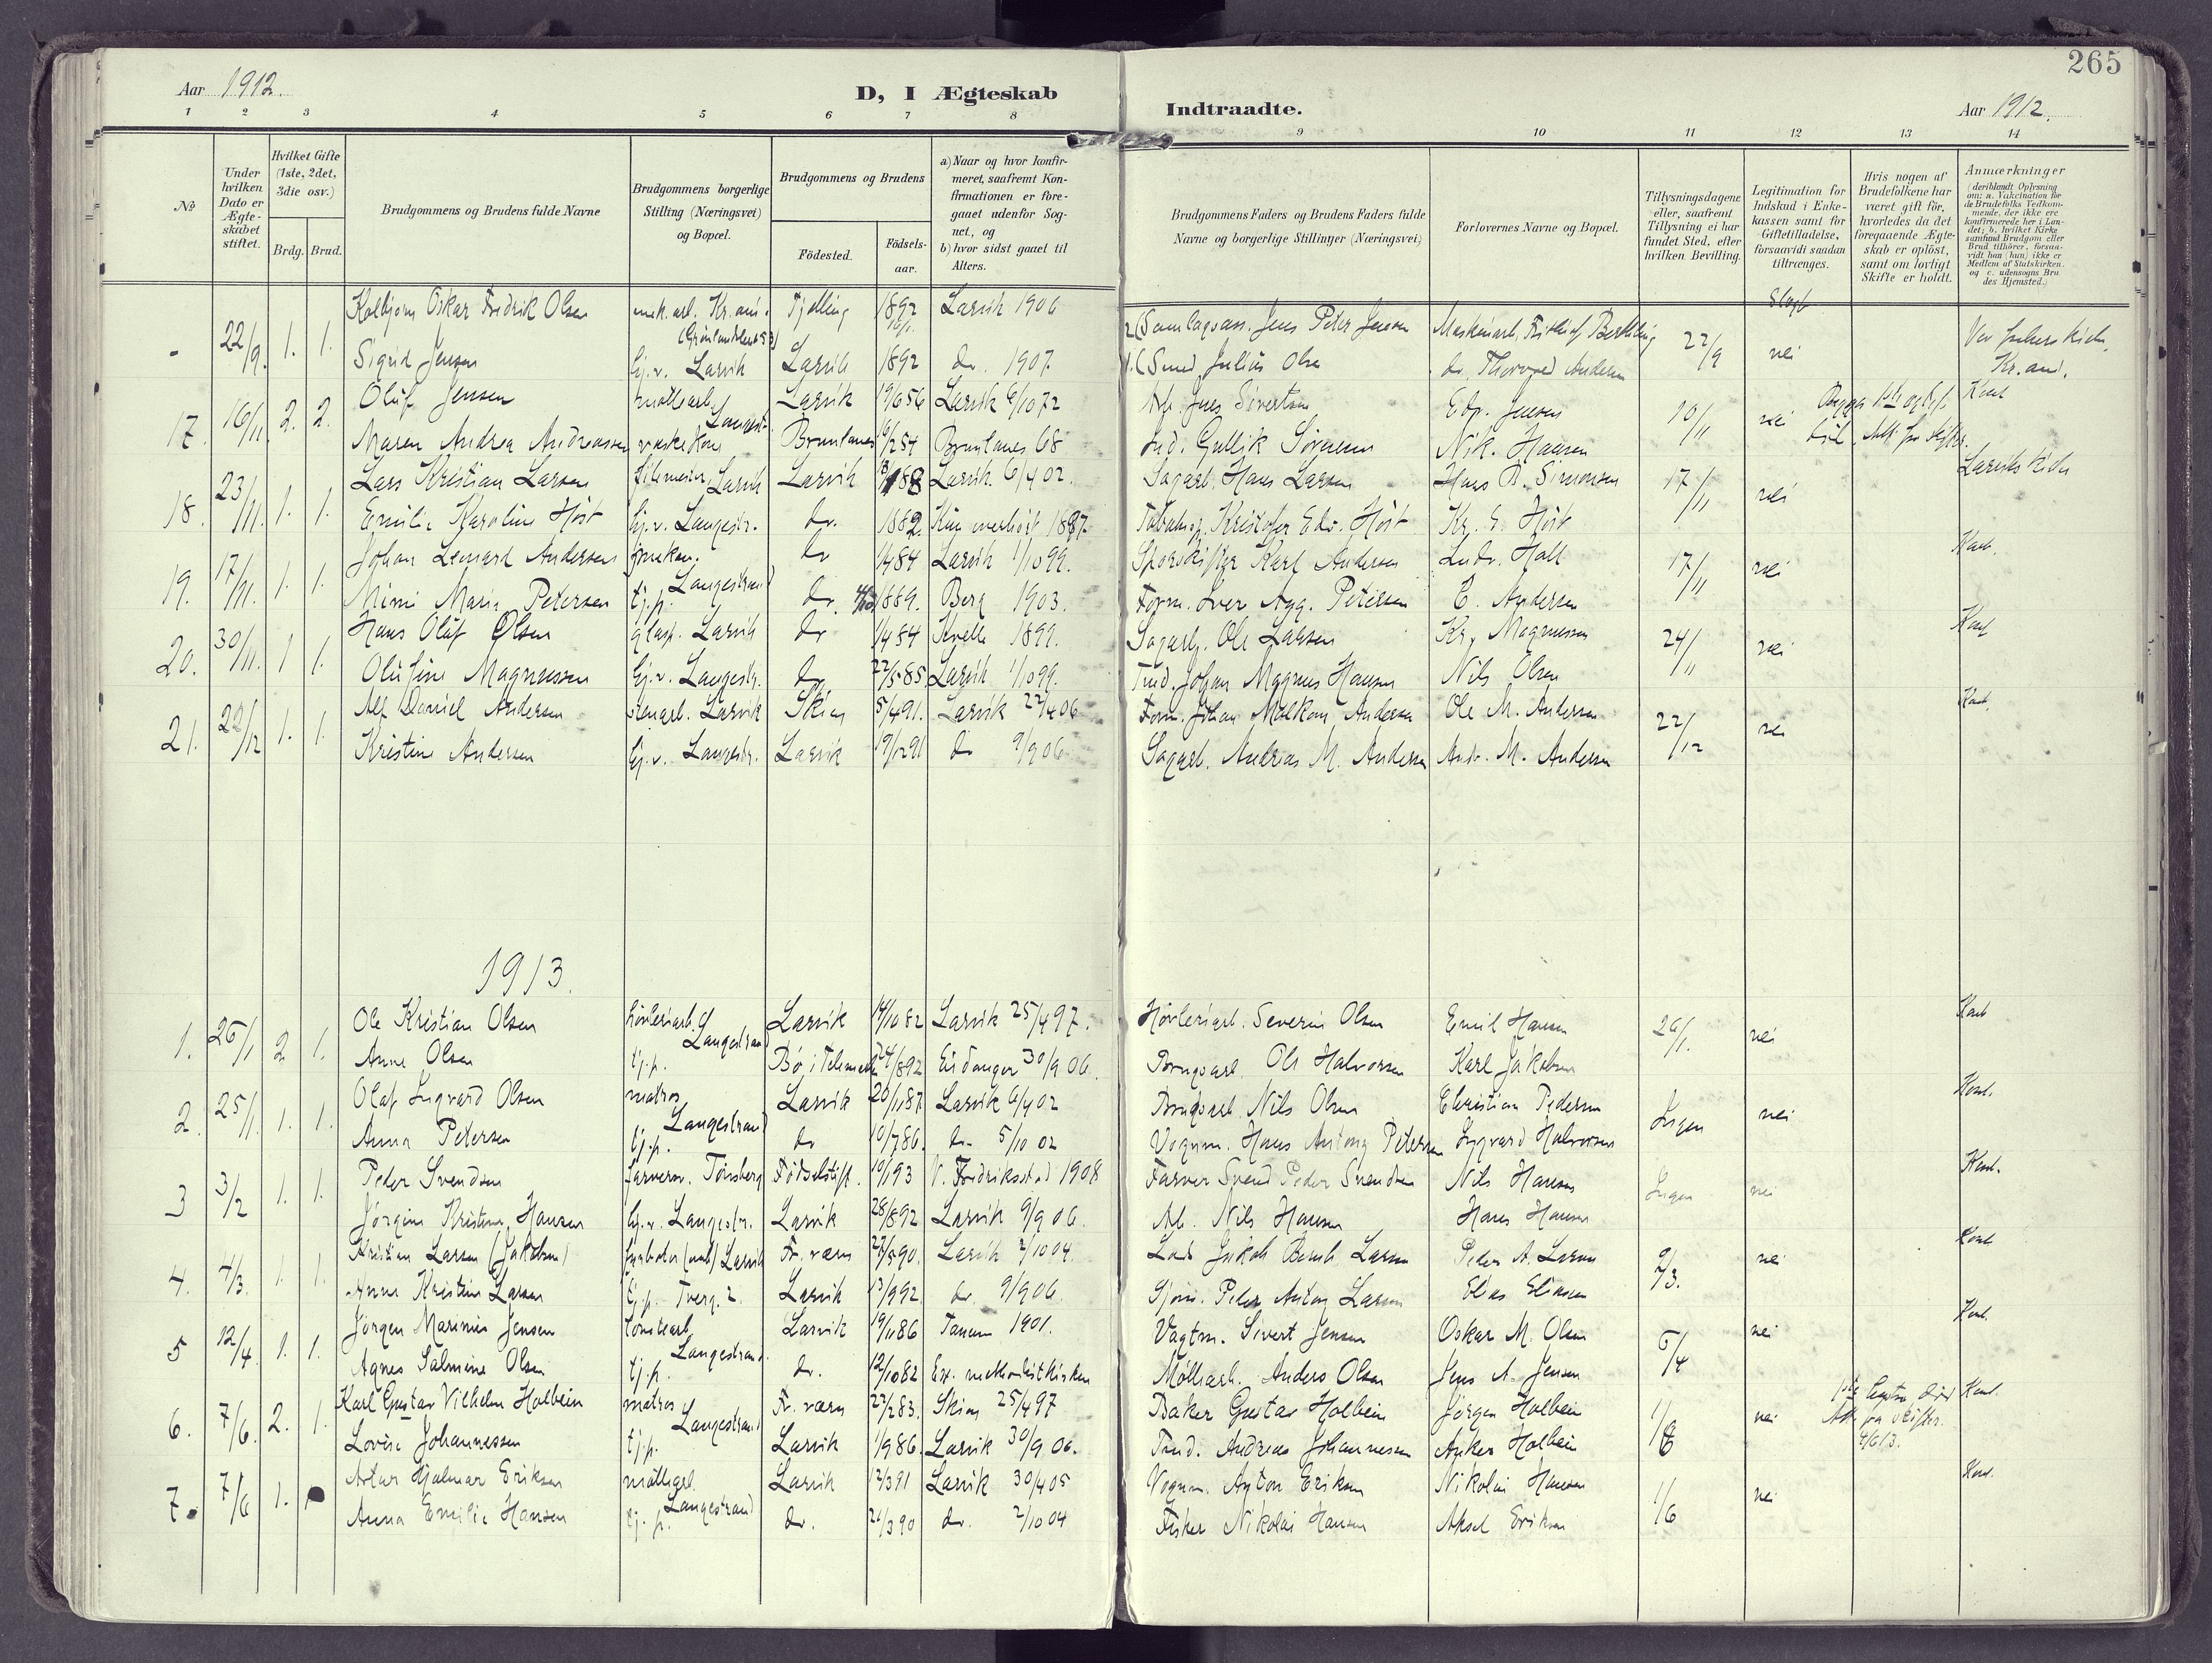 265
Aar 1912.
D, I Ægteskab
Indtraadte.
Aar 1912.
1 2 3 4 5 6 7 8 9 10 11 12 13 14
No
Under hvilken Dato er Ægte-skabet stiftet.
Hvilket Gifte (1ste, 2det, 3die osv.)
Brdg. Brud.
Brudgommens og Brudens fulde Navne
Brudgommens borgerlige Stilling (Næringsvei) og Bopæl.
Brudgommens og Brudens
Födested.
Födsels-aar.
a) Naar og hvor konfir-meret, saafremt Kon-firmationen er fore-gaaet udenfor Sog-net, og
b) hvor sidst gaaet til Alters.
Brudgommens Faders og Brudens Faders fulde Navne og borgerlige Stillinger (Næringsvei)
Forlovernes Navne og Bopæl.
Tillysningsdagene eller, saafremt Tillysning ei har fundet Sted, efter hvilken Bevilling.
Legitimation for Indskud i Enke-kassen samt for Giftetilladelse, forsaavidt saadan tiltrænges.
Hvis nogen af Brudefolkene har været gift för, hvorledes da det foregaaende Ægte-skab er oplöst, samt om lovligt Skifte er holdt.
Anmærkninger
(deriblandt Oplysning om: a. Vakcination for de Brudefolks Vedkom-mende, der ikke ere konfirmerede her i Lan-det; b. hvilket Kirke samfund Brudgom eller Brud tilhörer, forsaa-vidt han (hun) ikke er Medlem af Statskirken. og c. udensogns Bru des Hjemsted.)
- 22/9. 1. 1. Kolbjørn Oskar Fredrik Olsen mek. arb. Kr.ania Tjølling 1892 Larvik 1906
2(Jens Peter Jensen 22/9 nei
Sigrid Jensen hj.v. Larvik Larvik 1892 do. 1907.
1.(Smed Julius Olsen do. Thorvald Andersen Kr.ania.
17. 16/11. 2. 2. Oluf Jensen møllearb. Larvik 19/6 56 Larvik 6/10 72
Arb. Jens Sivertsen Edv. Jensen 10/11 nei
Maren Andrea Andreassen vaskekone Langestr. Brunlanes 16/2 54 Brunlanes 68
Ind. Gullik Sørensen Nik. Hansen
18. 23/11. 1. 1. Lars Kristian Larsen filemester Larvik Larvik 88 Larvik 6/4 02.
Sagarb. Hans Larsen Hans A. Simonsen 17/11 nei Larviks kirke
Emilie Karoline Høst hj.v. Langestr. do. 1882 overhørt 1887.
Kristofer Edv. Høst Kr. E. Høst
19. 17/11. 1. 1. Johan Lenard Andersen do 1/4 84 Larvik 1/10 99.
Karl Andersen Ludv. Hall 17/11 nei
Mimi Marie Petersen tj.p. Langestrand do. 1889. Berg 1903.
Form. Iver Agg. Petersen C. Andersen
20. 30/11. 1 1. Hans Oluf Olsen glasp. Larvik do 1/4 84 Kvelle 1899.
Sagarb. Ole Larsen Kr. Magnussen 24/11 nei
Olufine Magnussen hj.v. Langestr. do 22/5 85. Larvik 1/10 99.
Tind. Johan Magnus Hansen Nils Olsen
21. 22/12 1. 1. Alf Daniel Andersen stenarb. Larvik Skien 5/4 91. Larvik 22/4 06
Form. Johan Malkom Andersen Ole M. Andersen 22/12 nei
Kristine Andersen hj.v. Langestr. Larvik 19/12 91 do 9/9 06
Sagarb. Andreas M. Andersen Andr. M. Andersen
1913.
1. 26/1 2 1. Ole Kristian Olsen høvleriarb. Larvik 14/10 82 Larvik 25/4 97.
Høvleriarb. Severin Olsen Emil Hansen 26/1. nei
Anne Olsen tj.p. Langestrand Bø i Telemarken 24/8 92 Eidanger 30/9 06.
Ole Halvorsen Karl Jakobsen
2. 25/1. 1. 1. Olaf Ingvard Olsen matros Larvik 20/11 87. Larvik 6/4 02
Nils Olsen Christian Pedersen Ingen nei
Anna Petersen tj.p. Langestrand do 10/7 86. do. 5/10 02
Vognm. Hans Antony Petersen Ingvard Halvorsen
3 3/2 1. 1. Peder Svendsen farversv. Tønsberg Fødselstift. 10/1 93 V. Fredriksstad 1908
Farver Svend Peder Svendsen Nils Hansen Ingen nei
Jørgine Kristine Hansen hj.v. Langestr. Larvik 28/8 92 Larvik 9/9 06.
Arb. Nils Hansen Hans Hansen
4. 4/3. 1. 1. Kristian Larsen (Jakobsen) fyrbøter Larvik Fr. værn 27/5 90. Larvik 2/10 04.
Jakob Bernh. Larsen Peder A. Larsen 2/3. nei
Anne Kristine Larsen tj.p. Tverg. 2. Larvik 13/9 92 do. 9/9 06.
Sjøm. Peder Anton Larsen Elias Eliasen
5 12/4. 1. 1. Jørgen Marinius Jensen tomtearb. Larvik 19/11 86 Tanum 1901.
Vagtm. Sivert Jensen Oskar M. Olsen 6/4 nei
Agnes Salmine Olsen tj.p. Langestrand do. 12/10 82 Ex. methodistkirken
Møllearb. Anders Olsen Jens A. Jensen
6. 7/6. 2. 1. Karl Gustav Vilhelm Holbein matros Fr. værn 22/2 83. Skien 25/4 97
Baker Gustav Holbein Jørgen Holbein 1/6 nei
Lovise Johannessen tj.p. Langestrand Larvik 1/9 86. Larvik 30/9 06.
Tind. Andreas Johannessen Anker Holbein
4/6 13.
7. 7/6 1. Artur Hjalmar Eriksen møllearb. Larvik 12/3 91 Larvik 30/4 05
Vognm. Anton Eriksen Nikolai Hansen 1/6 nei
Anna Emilie Hansen tj.p. Langestrand do. 21/3 90 do. 2/10 04
Fisker Nikolai Hansen Aksel Eriksen